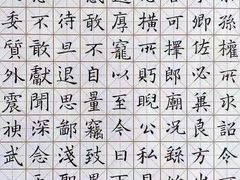 孫權所求詔令
卿佐必冀良方
可擇郎廟況繇
橫所盼睨公私
厚寵以至今日
敢不自量竊致
待旦退思鄙淺
不敢獻聞深念
委質外震神武